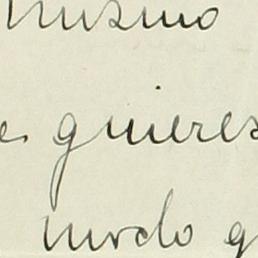 mismo
quieres
modo q